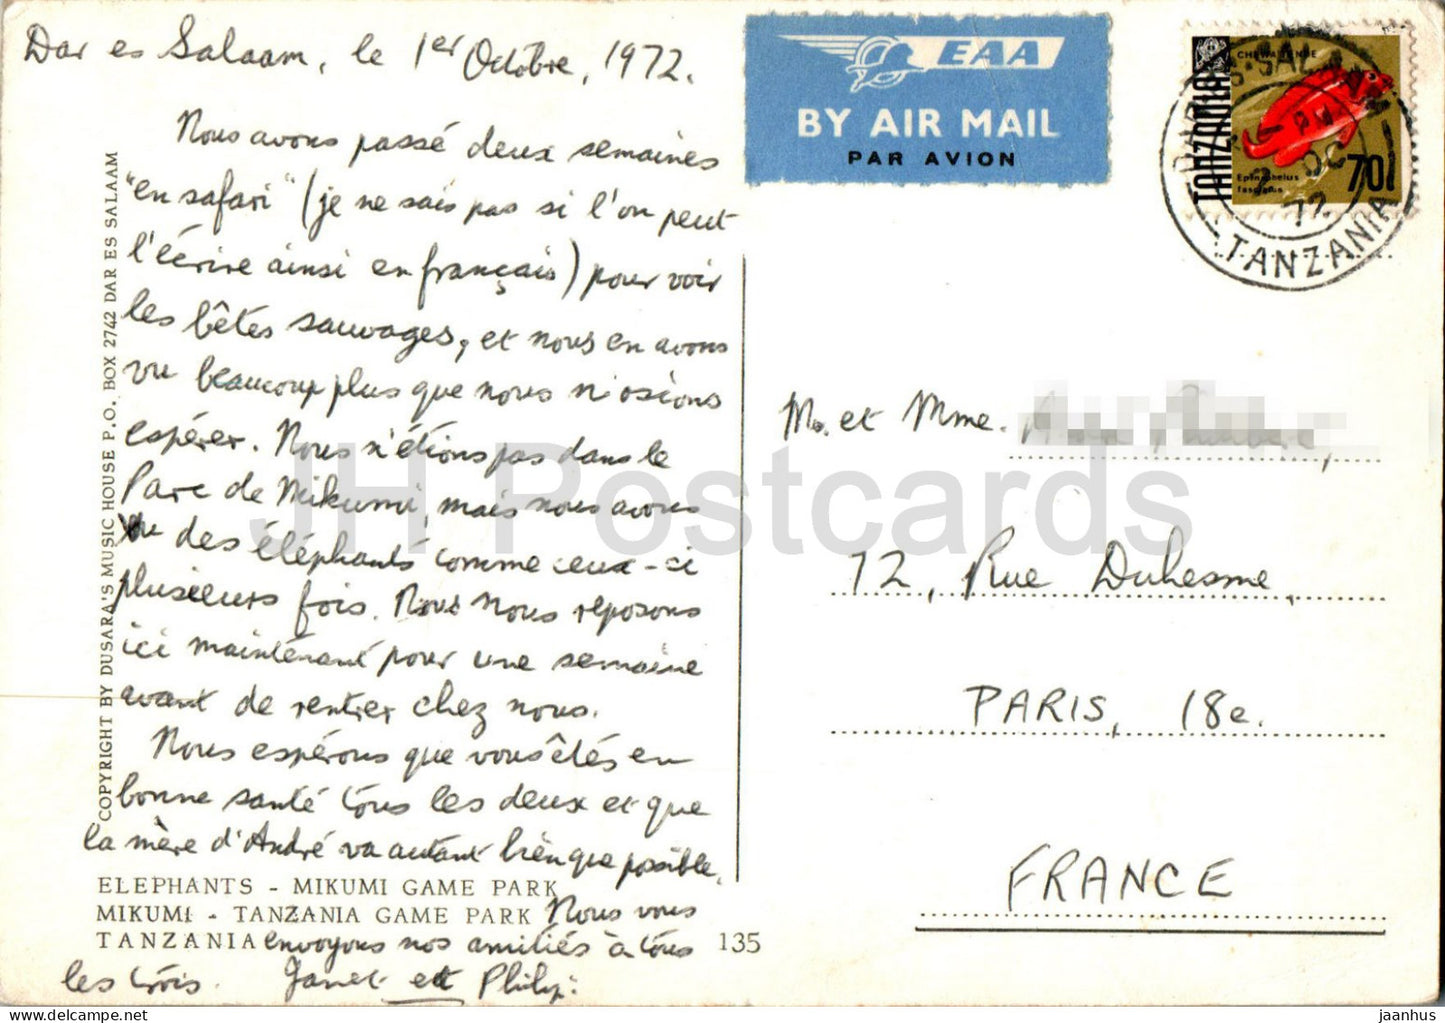 Dar es Salaam, le 1er Octobre, 1972.
Nous avons passé deux semaines
"en safari" (je ne sais pas si l'on peut
l'écrire ainsi en français) pour voir
les bêtes sauvages, et nous en avons
vu beaucoup plus que nous n'osions
espérer. Nous n'étions pas dans le
Parc de Mikumi, mais nous avons
vu des éléphants comme ceux-ci
plusieurs fois. Nous nous reposons
ici maintenant pour une semaine
avant de rentrer chez nous.
Nous espérons que vous êtes en
bonne santé tous les deux et que
la mère d'André va autant bien que possible.
Nous vous
envoyons nos amitiés à tous
les trois. Janet et Philip.
ELEPHANTS - MIKUMI GAME PARK
MIKUMI - TANZANIA GAME PARK
TANZANIA
135
COPYRIGHT BY DUSARA'S MUSIC HOUSE P.O. BOX 2742 DAR ES SALAAM
EAA
BY AIR MAIL
PAR AVION
TANZANIA
CHEWA
Epinephelus
fasciatus
70/
DAR-ES-SALAAM
2 OC
72
TANZANIA
M. et Mme.
72, Rue Duhesme,
PARIS, 18e.
FRANCE
JH Postcards
jaanhus